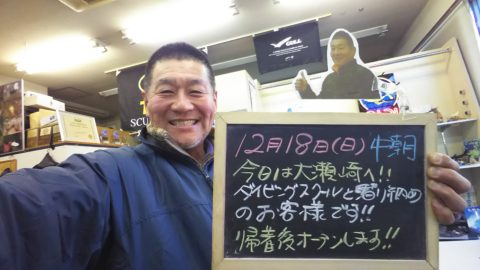 GULL
SCU
12月18日(日) 中潮
今日は大瀬崎へ!!
ダイビングスクールと潜り納め
のお客様です!!
帰着後オープンします!!